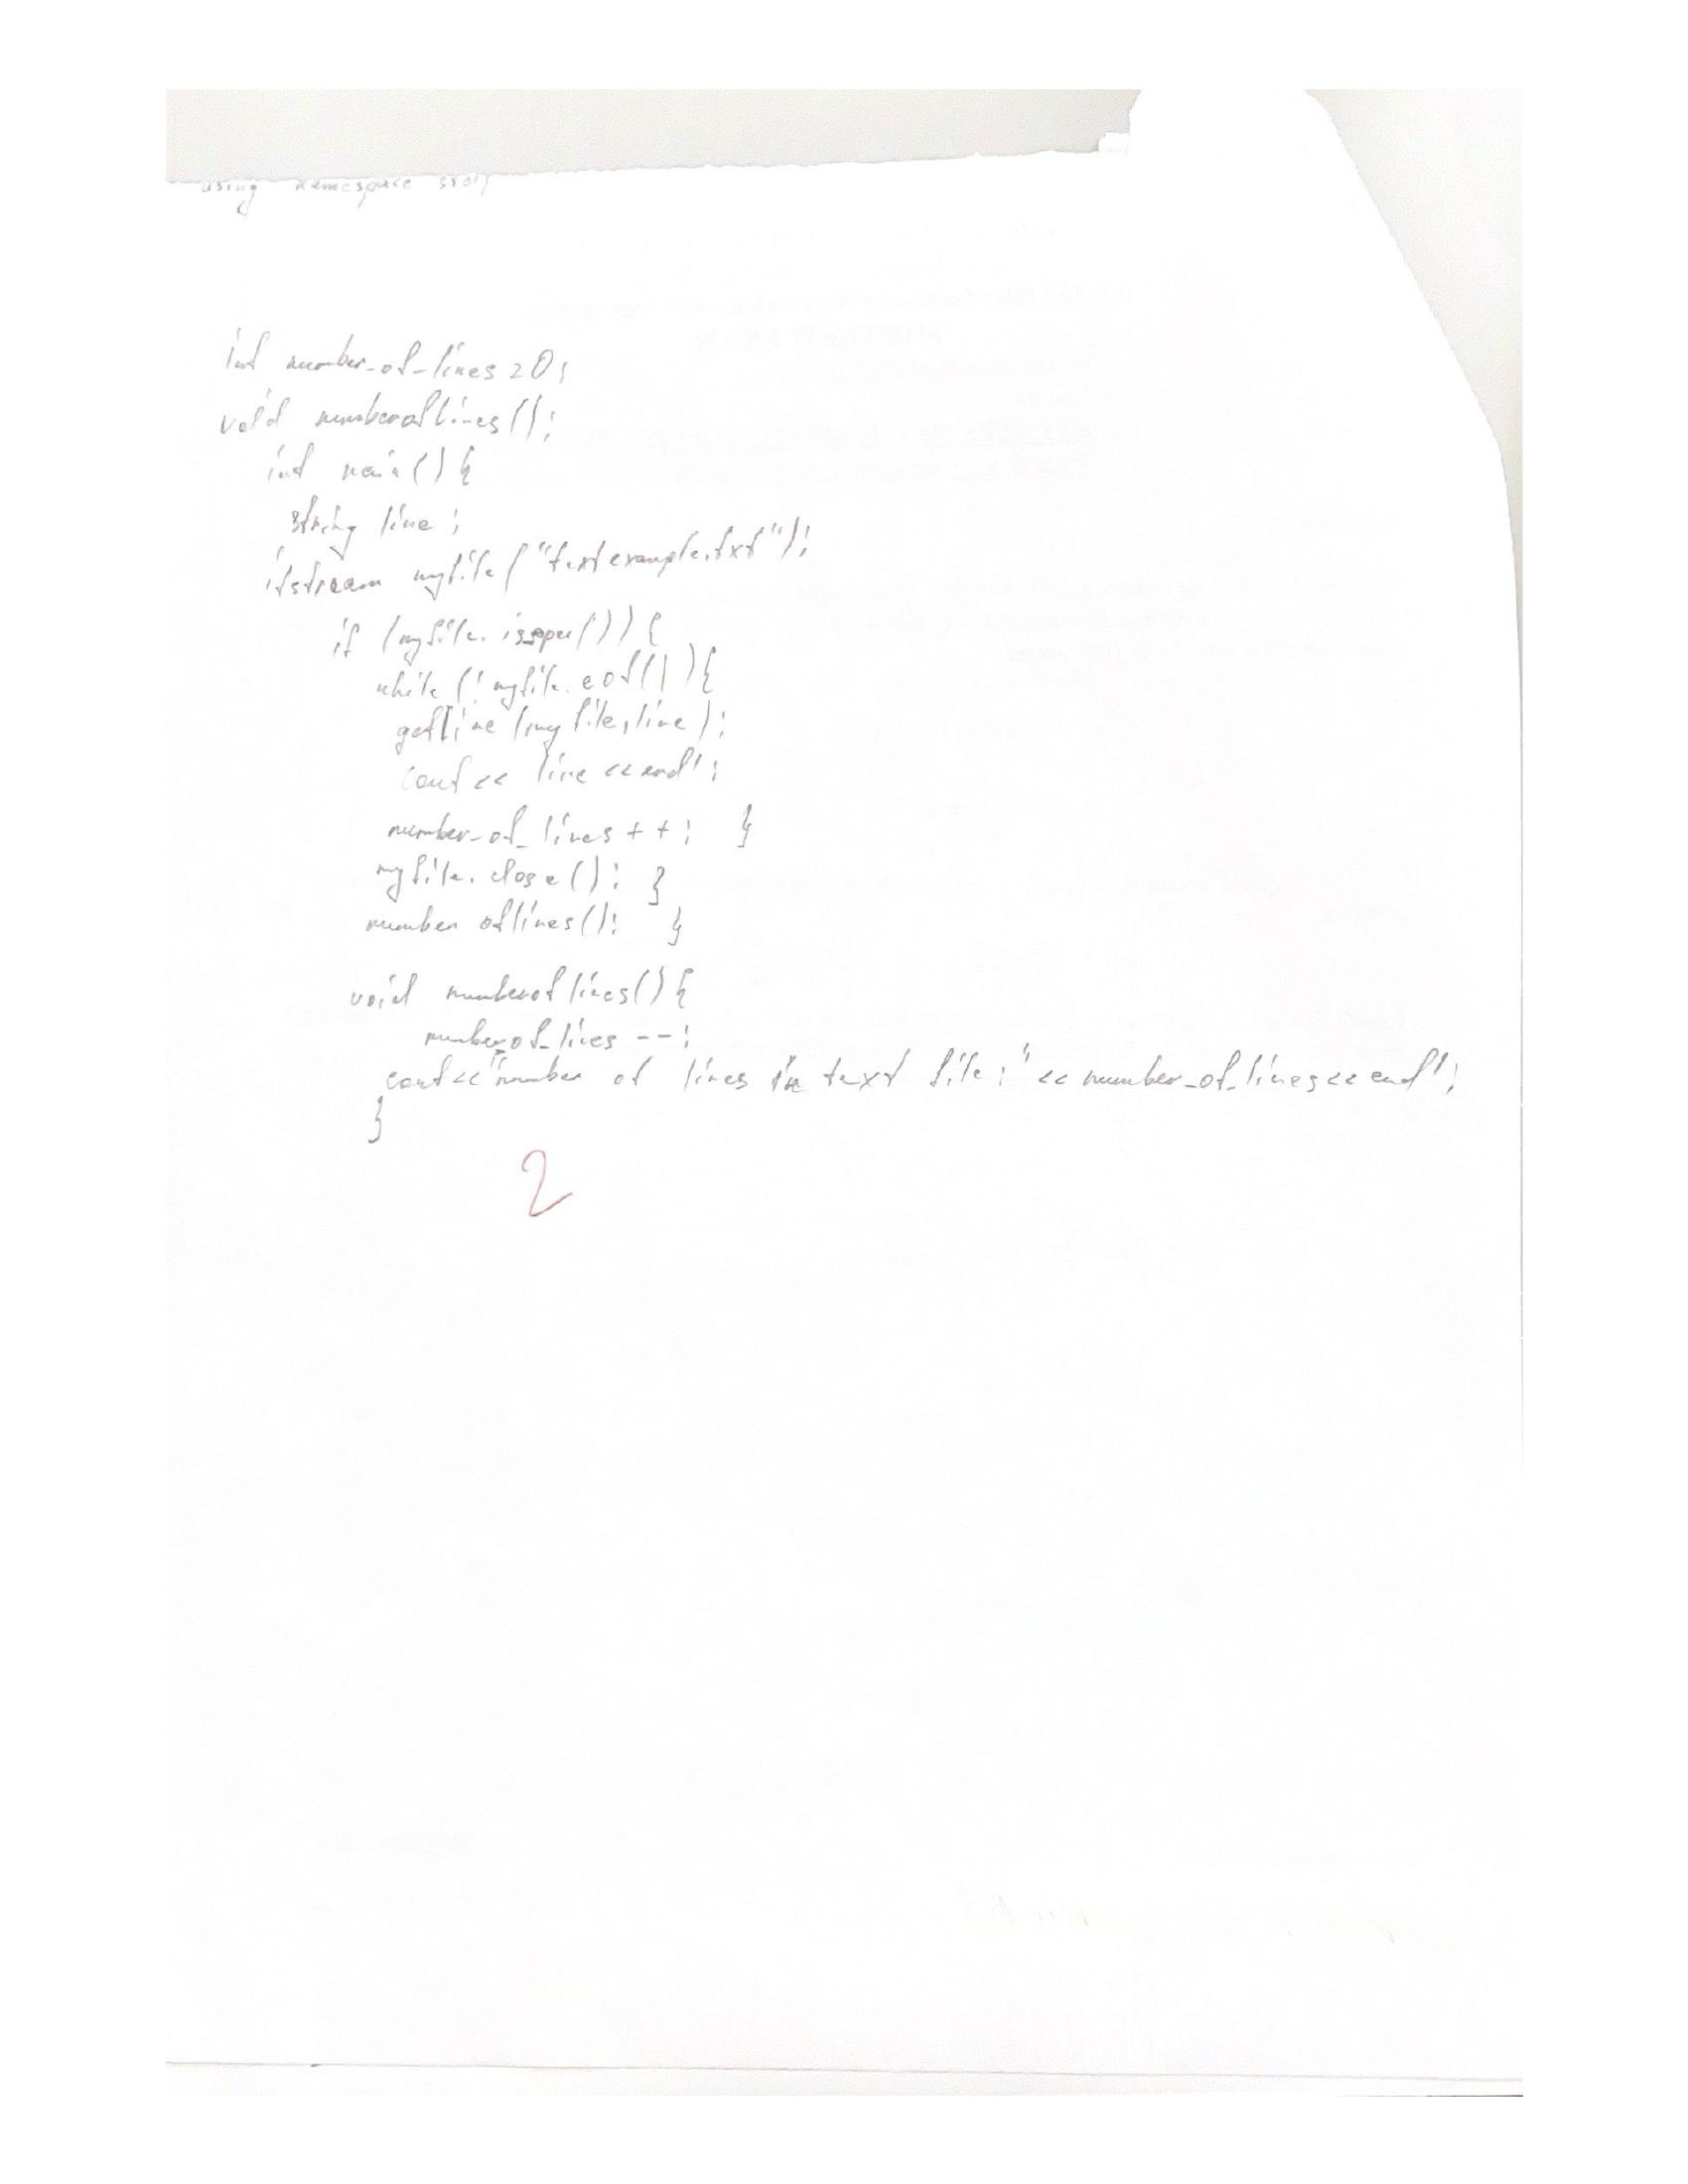 using namespace std;
int number_of_lines = 0;
void numberoflines();
int main(){
string line;
ifstream myfile("textexample.txt");
if (myfile.is_open()){
while (!myfile.eof()){
getline(myfile,line);
cout << line << endl;
number_of_lines++; }
myfile.close(); }
numberoflines(); }
void numberoflines(){
number_of_lines --;
cout<<"number of lines in text file: "<< number_of_lines<< endl;
}
2